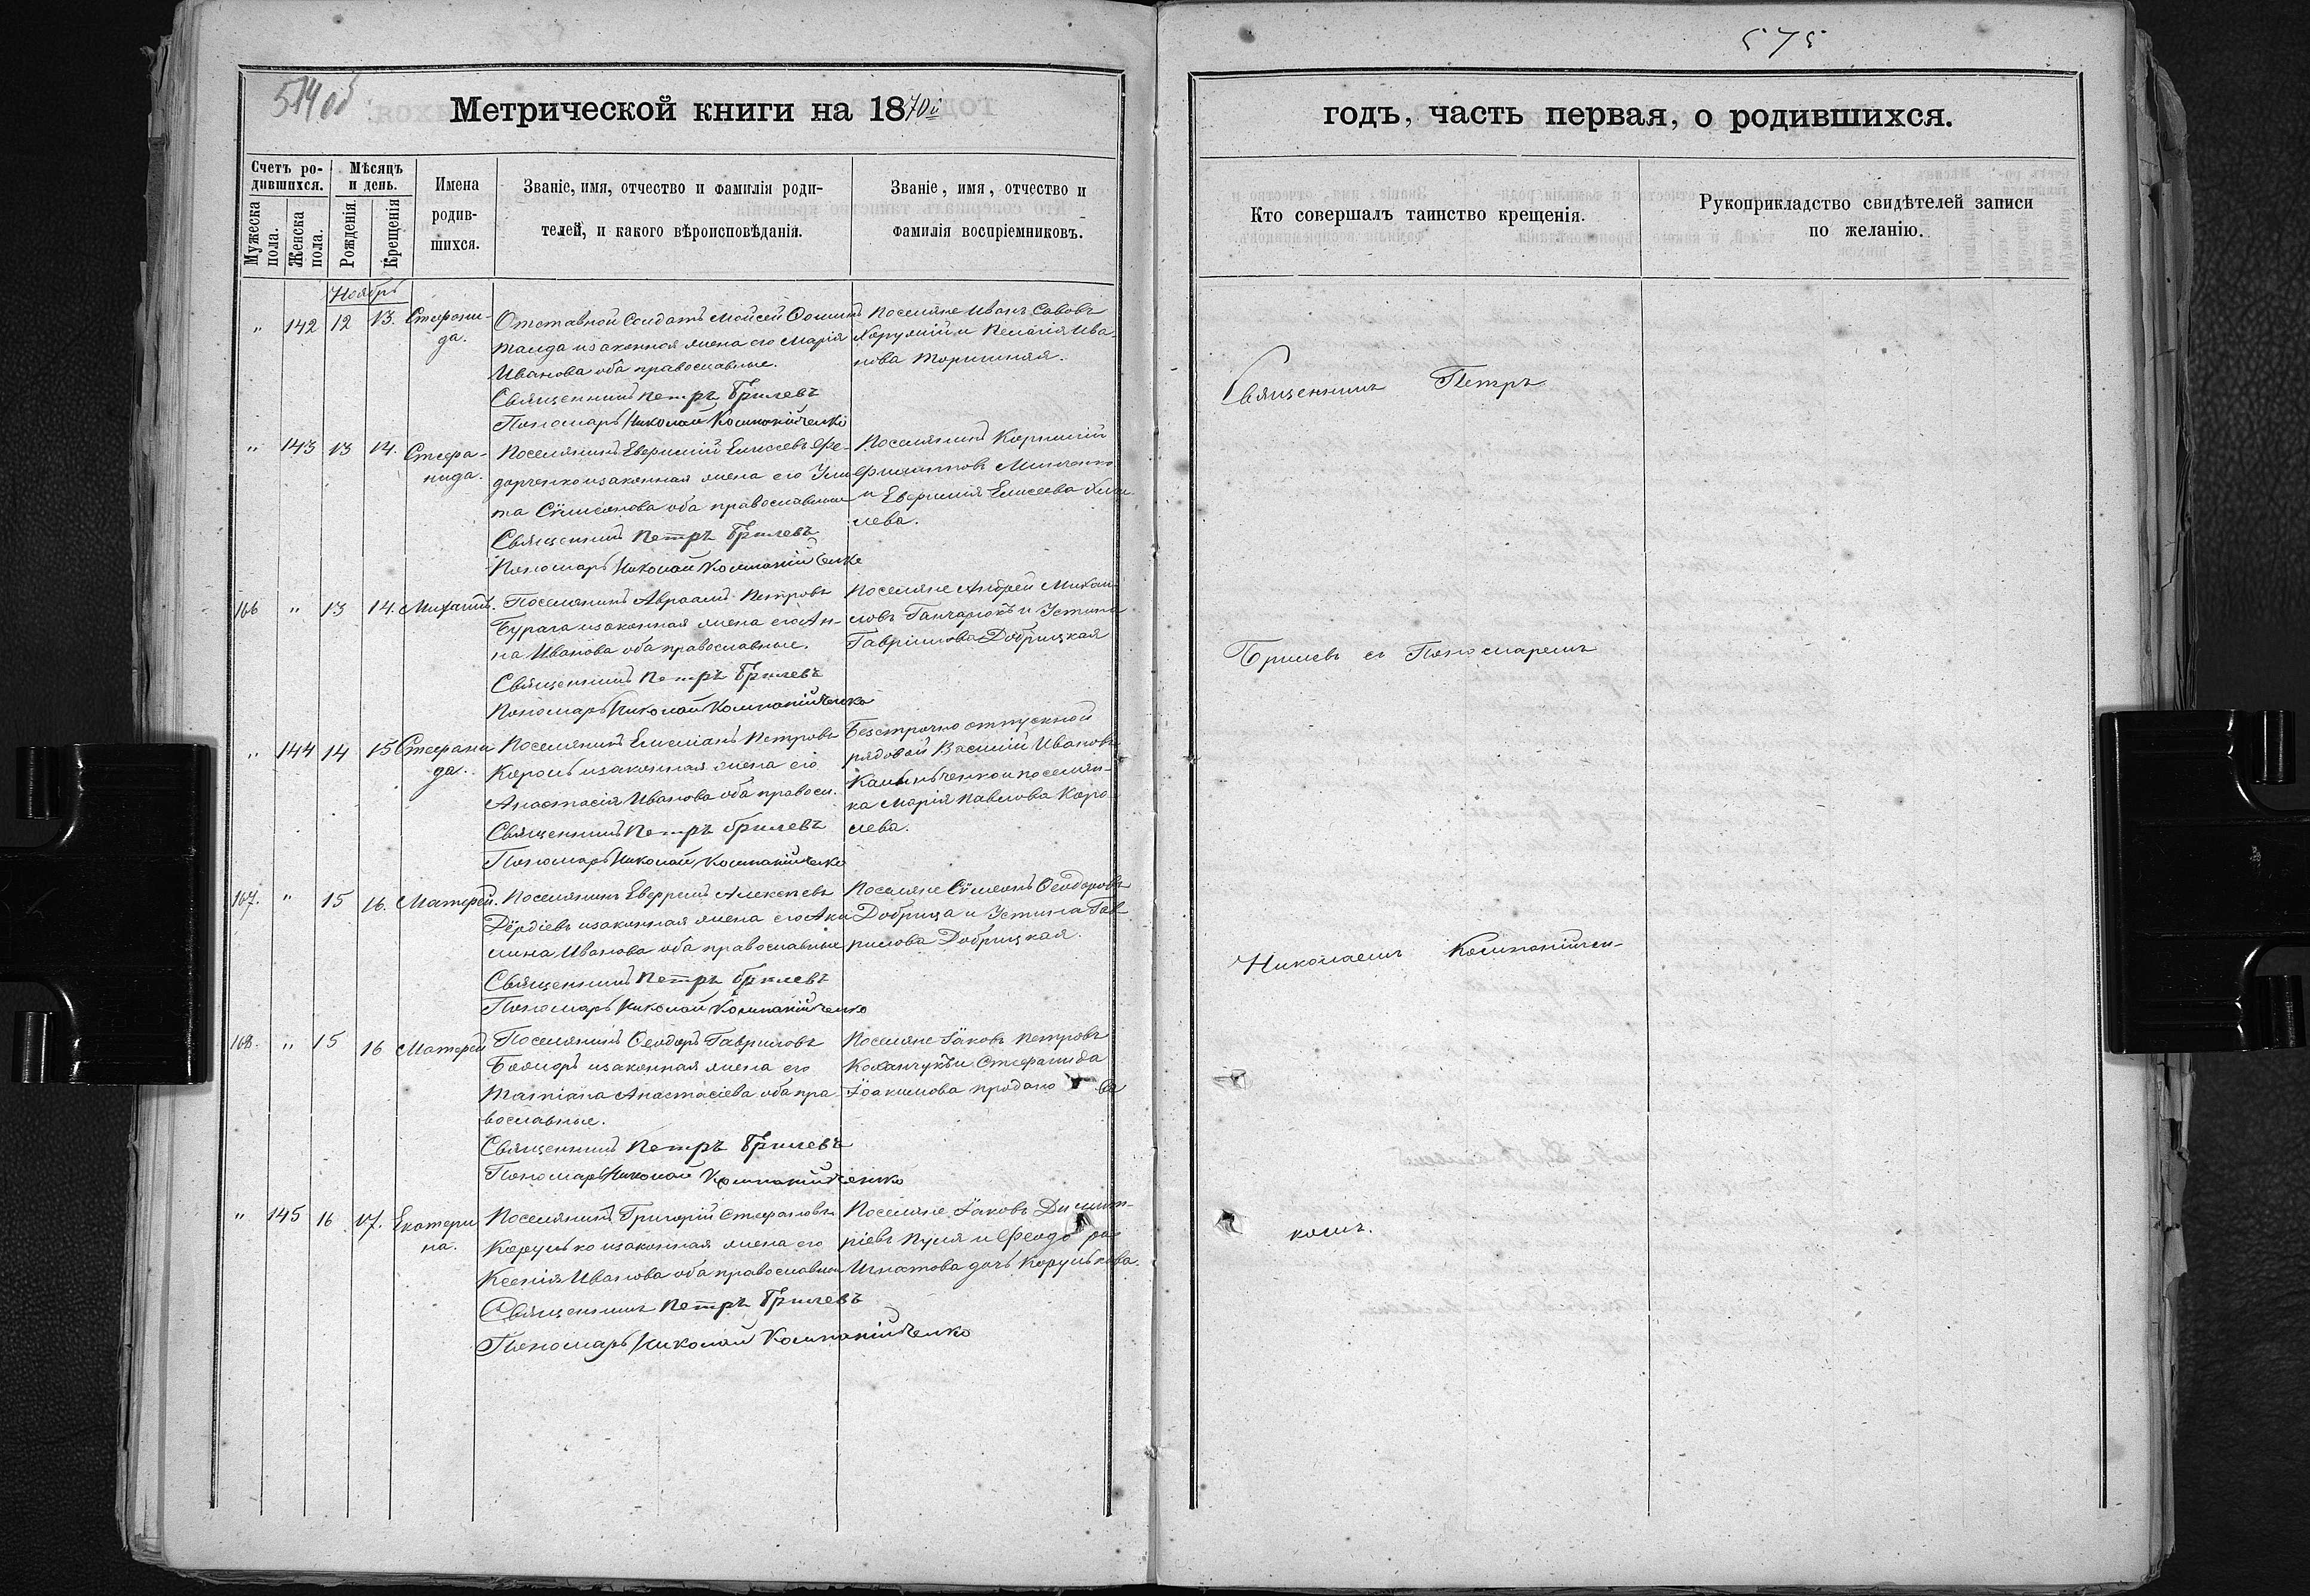 574 об
Метрической книги на 1870й
Счетъ ро-
дившихся.
Мужеска пола.
Женска пола.
Мѣсяцъ
и день.
Рожденія.
Крещенія
Имена
родив-
шихся.
Званіе, имя, отчество и фамилія роди-
телей, и какого вѣроисповѣданія.
Званіе, имя, отчество и
фамилія воспріемниковъ.
Ноябрь
" 142 12 13. Стефани-
да.
Отставной Солдатъ Моисей Фоминъ
изаконная жена его Марія
Иванова оба православные.
Священникъ Петръ Брилевъ
Пономарь Николай Компанійченко
Поселяне Иванъ Савовъ
и Пелагія Ива
нова
" 143 13 14. Стефа-
нида.
Поселянинъ Евфимій Елисеевъ Фе-
дорченко изаконная жена его Ули
та Сѵмеонова оба православные
Священникъ Петръ Брилевъ
Пономарь Николай Компанійченко
Поселянинъ Корнилій
Филиповъ Минченко
и Евфимія Елисеева
лева.
166 " 13 14. Михаилъ.
Поселянинъ Авраамъ Петровъ
Бурага изаконная жена его Ан-
на Иванова оба православные.
Священникъ Петръ Брилевъ
Пономарь Николай Компанійченко
Поселяне Андрей Михаи
ловъ Ганчарюкъ и Устина
Гавріилова Добрицкая
" 144 14 15 Стефани
да.
Поселянинъ Емеліанъ Петровъ
Король изаконная жена его
Анастасія Иванова оба правосл.
Священникъ Петръ Брилевъ
Пономарь Николай Компанійченко
Безсрочно отпускной
рядовой Василій Ивановъ
и поселян-
ка Марія Павлова Коро
лева.
167. " 15 16. Матфей.
Поселянинъ Ефремъ Алексѣевъ
Дёрдіевъ изаконная жена его Аки
лина Иванова оба православные
Священникъ Петръ Брилевъ
Пономарь Николай Компанійченко
Поселяне Сѵмеонъ Ѳеодоровъ
Добрица и Устина Гав
рилова Добрицкая.
168. " 15 16 Матфей
Поселянинъ Ѳеодоръ Гавриловъ
Бояноръ изаконная жена его
Татіана Анастасіева оба пра
вославные.
Священникъ Петръ Брилевъ
Пономарь Николай Компанійченко
Поселяне Іаковъ Петровъ
и Стефанида
Іоакимова
" 145 16 17. Екатери
на.
Поселянинъ Григорій Стефановъ
Корулько изаконная жена его
Ксенія Иванова оба православные
Священникъ Петръ Брилевъ
Пономарь Николай Компанійченко
Поселяне Іаковъ Димит-
ріевъ Пуля и Феодо ра
Игнатова дочь Корулькова.
575
годъ, часть первая, о родившихся.
Кто совершалъ таинство крещенія.
Рукоприкладство свидѣтелей записи
по желанію.
Священникъ Петръ
Брилевъ съ Пономаремъ
Николаемъ Компанійчен-
комъ.